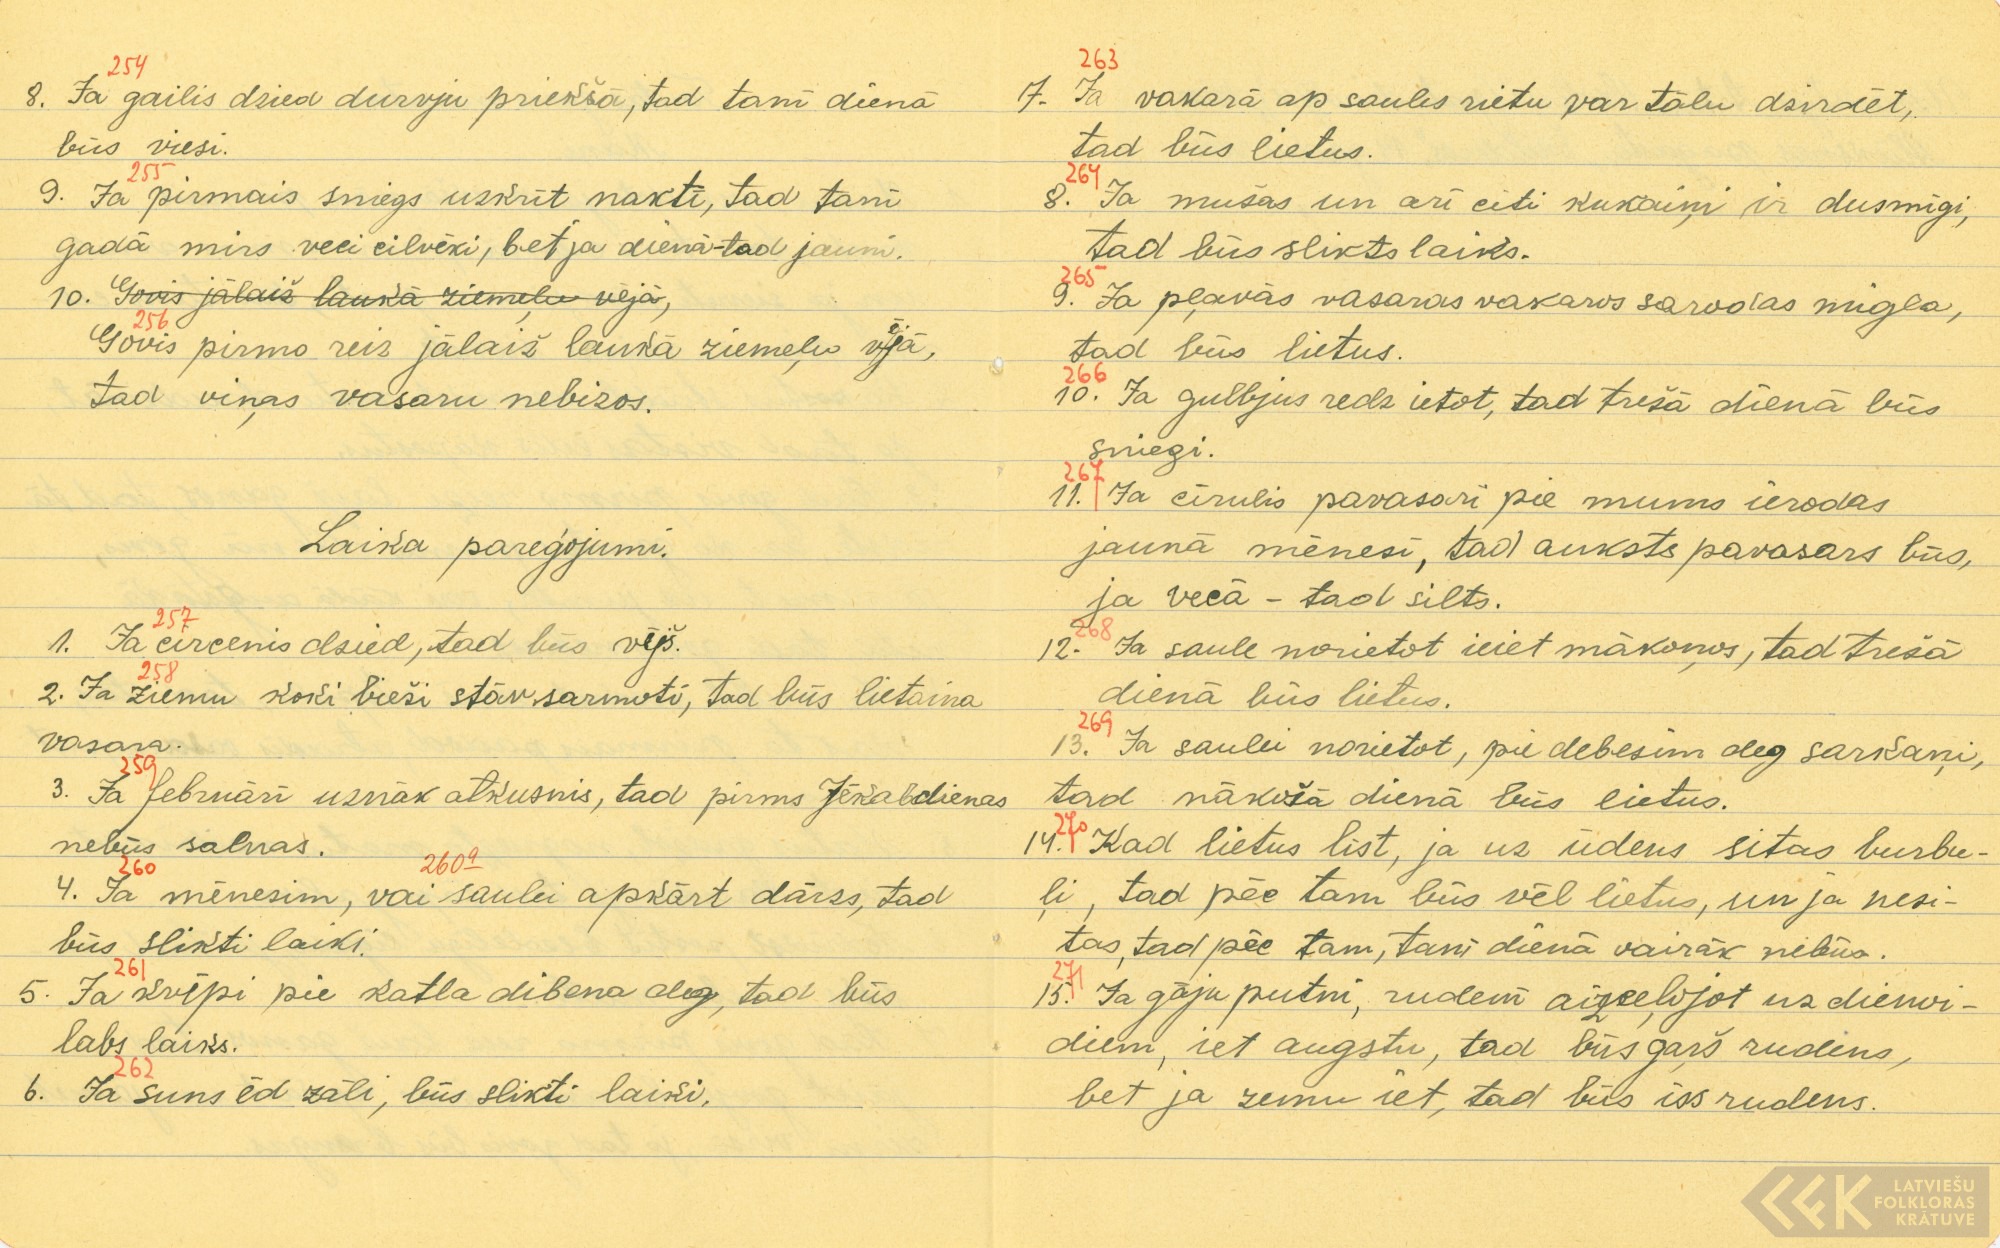 254
8. Ja gailis dzied durvju priekšā, tad tanī dienā
būs viesi.
255
9. Ja pirmais sniegs uzkrīt naktī, tad tanī
gadā mirs veci cilvēki, bet ja dienā-tad jauni.
10. Govis jālaiž laukā ziemeļu vējā,
256
Govis pirmo reiz jālaiž laukā ziemeļu vējā,
tad viņas vasaru nebizos.
Laika pareģojumi.
257
1. Ja circenis dzied, tad būs vējš.
258
2. Ja ziemu koki bieži stāv sarmoti, tad būs lietaina
vasara.
259
3. Ja februārī uznāk atkusnis, tad pirms Jēkabdienas
nebūs salnas.
260 260a
4. Ja mēnesim, vai saulei apkārt dārzs, tad
būs slikti laiki.
261
5. Ja kvēpi pie katla dibena deg, tad būs
labs laiks.
262
6. Ja suns ēd zāli, būs slikti laiki.
263
7. Ja vakarā ap saules rietu var tālu dzirdēt,
tad būs lietus.
264
8. Ja mušas un arī citi kukaiņi ir dusmīgi,
tad būs slikts laiks.
265
9. Ja pļavās vasaras vakaros sarodas migla,
tad būs lietus.
266
10. Ja gulbjus redz ietot, tad trešā dienā būs
sniegi.
267
11. Ja cīrulis pavasarī pie mums ierodas
jaunā mēnesī, tad auksts pavasars būs,
ja vecā – tad silts.
268
12. Ja saule norietot ieiet mākoņos, tad trešā
dienā būs lietus.
269
13. Ja saulei norietot, pie debesīm deg sarkaņi,
tad nākošā dienā būs lietus.
270
14. Kad lietus līst, ja uz ūdens sitas burbu-
ļi, tad pēc tam būs vēl lietus, un ja nesi-
tas, tad pēc tam, tanī dienā vairāk nebūs.
271
15. Ja gāju putni, rudenī aizceļojot uz dienvi-
diem, iet augstu, tad būs gaŗš rudens,
bet ja zemu iet, tad būs īss rudens.
LATVIEŠU
FOLKLORAS
KRĀTUVE